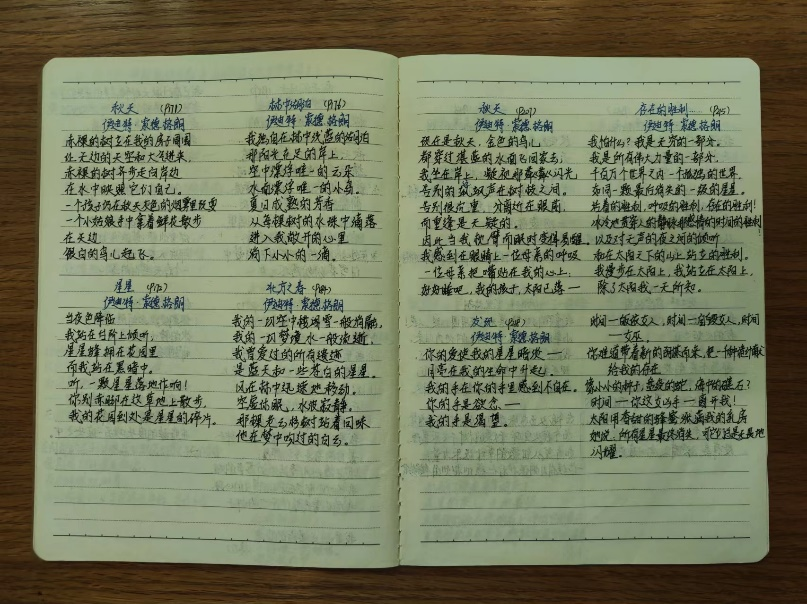 秋天 (P171)
伊迪特·索德格朗
赤裸的树立在我的房子周围
让无边的天空和大气进来，
赤裸的树迈步走向岸边
在水中映照它们自己。
一个孩子仍在秋天灰色的烟雾里玩耍
一个小姑娘手中拿着鲜花散步
在天边
银白的鸟儿起飞。
星星
伊迪特·索德格朗
当夜色降临
我站在台阶上倾听，
星星蜂拥在花园里
而我站在黑暗中。
听，一颗星星落地作响！
你别赤脚在这草地上散步，
我的花园到处是星星的碎片。
林中湖泊 (P176)
伊迪特·索德格朗
我独自在林中浅蓝的湖泊
那阳光充足的岸上，
空中漂浮唯一的云朵
水面漂浮唯一的小岛。
夏日成熟的芳香
从每棵树的水珠中滴落
进入我敞开的心里
滴下小小的一滴。
北方之春
伊迪特·索德格朗
我的一切空中楼阁雪一般消融，
我的一切梦境水一般流逝，
我曾爱过的所有
是蓝天和一些苍白的星星。
风在林中迅速地移动。
空虚休眠，水波寂静。
那棵老云杉树站着回味
他在梦中吻过的白云。
秋天
伊迪特·索德格朗
现在是秋天，金色的鸟儿
都穿过湛蓝的水面飞回家去；
告别的声在树枝之间。
告别很广阔，分离近在眼前，
而重逢是无疑的。
我感到在眼睛上一位母亲的呼吸
一位母亲把嘴贴在我的心上：
好好睡吧，我的孩子，太阳已落——
发现
伊迪特·索德格朗
你的爱使我的星星暗淡——
月亮在我的生命中升起。
我的手在你的手里感到不自在。
你的手是欲念——
我的手是渴望。
存在的胜利…
伊迪特·索德格朗
我怕什么？我是无穷的一部分。
我是所有伟大力量的一部分，
千百万个世界内一个孤独的世界，
如同一颗最后消失的一级的星星。
活着的胜利，呼吸的胜利，存在的胜利！
以及对无声的夜之河的倾听
和在太阳下的山上站立的胜利。
我漫步在太阳上，我站立在太阳上，
除了太阳我一无所知。
时间——女人，时间——毁灭女人，时间
——女巫，
你难道带着新的而来，把一种
给我的存在
像小小的种子，盘旋的蛇，海中的礁石？
时间——你这女凶手——离开我！
太阳用香甜的蜂蜜涨满我的乳房
她说：所有星星最终消失，可它们总是无畏地
闪耀。